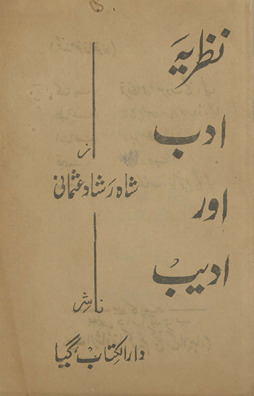 نظریہ
ادب
اور
ادیب
از
شاہ رشاد عثمانی
ناشر
دارالکتاب، گیا